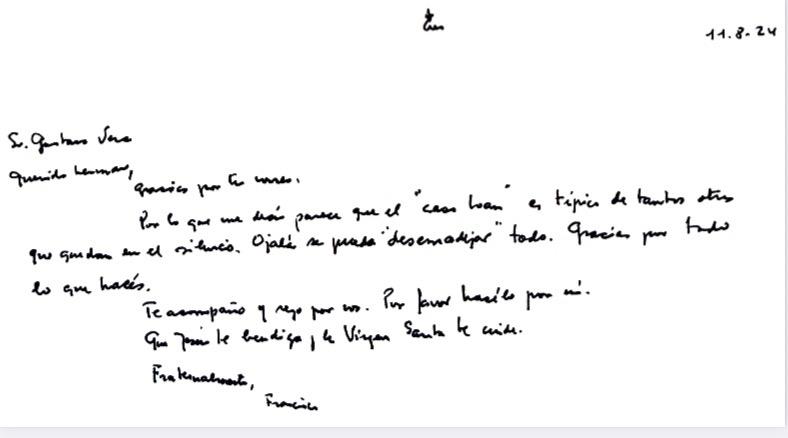 11.8.24
Sr. Gustavo Vera
Querido hermano,
gracias por tu correo.
Por lo que me decís parece que el "caso Loan" es típico de tantos otros
que quedan en el silencio. Ojalá se pueda "desenmadejar" todo. Gracias por todo
lo que hacés.
Te acompaño y rezo por vos. Por favor hacélo por mí.
Que Jesús te bendiga y la Virgen Santa te cuide.
Fraternalmente,
Francisco